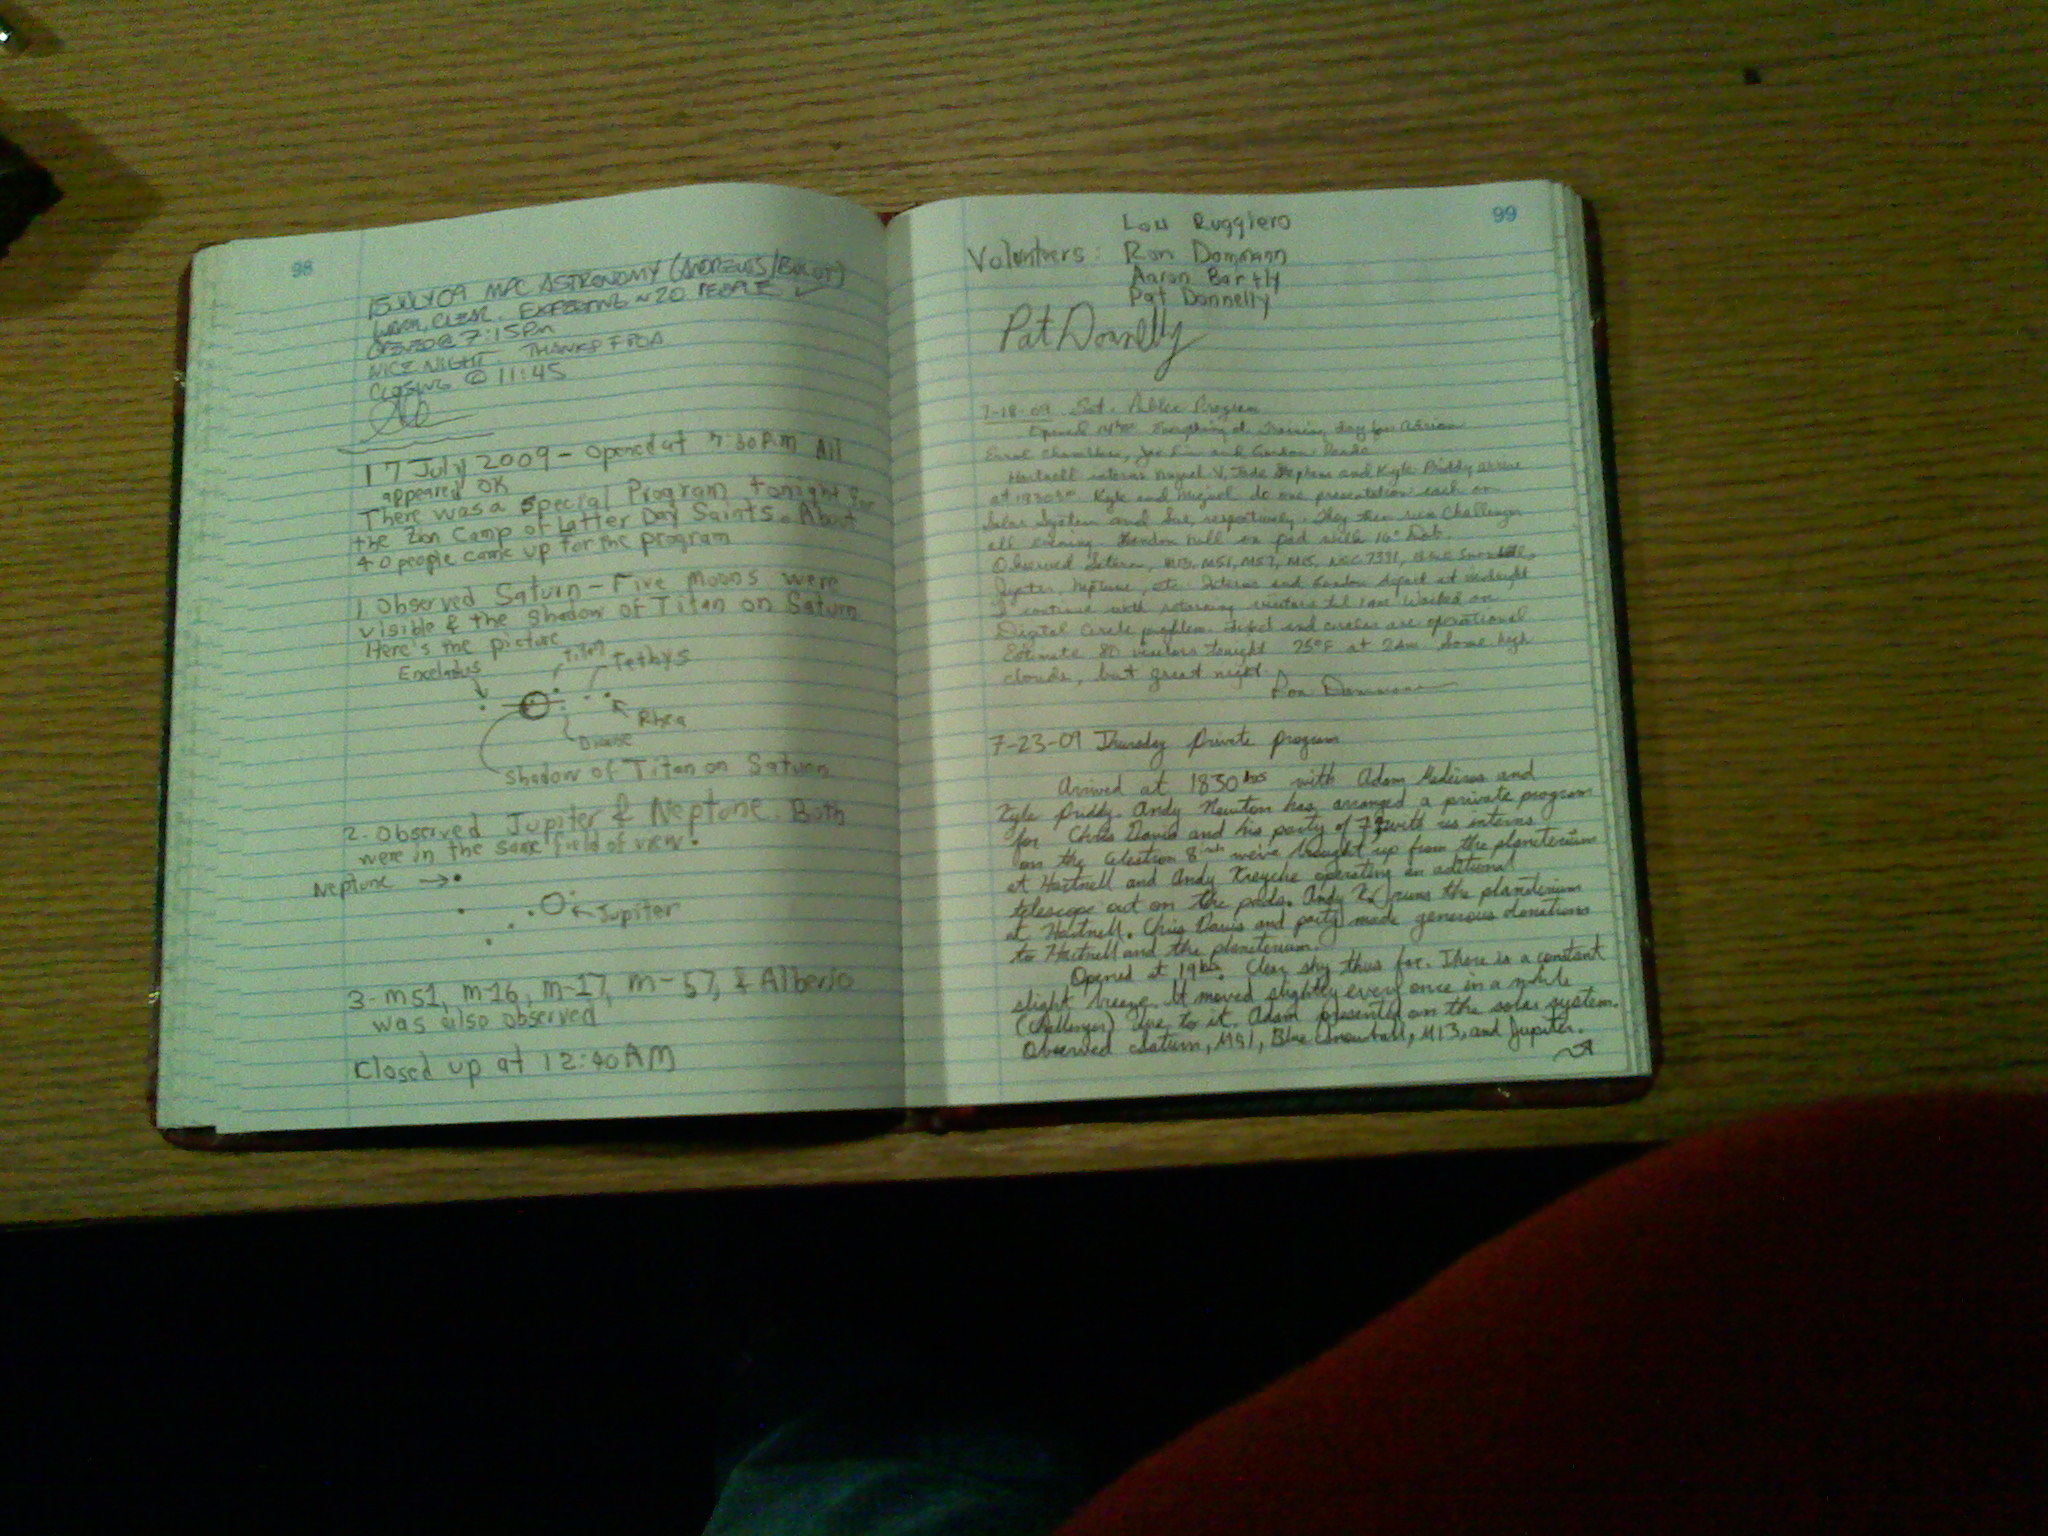 98
15 JULY 09 MPC ASTRONOMY (ANDREWS/
CLEAR. EXPECTING ~20 PEOPLE
OPENED @ 7:15 PM
NICE NIGHT THANKS
CLOSING @ 11:45
17 July 2009 - Opened at 7:30 P.M All
appeared OK
There was a special Program tonight for
the Zion Camp of Latter Day Saints. About
40 people came up for the program
1. Observed Saturn - Five Moons were
visible & the Shadow of Titan on Saturn
Here's the picture
Titan
Enceladus
Tethys
Rhea
Shadow of Titan on Saturn
2. Observed Jupiter & Neptune. Both
were in the same field of view.
Neptune →
← Jupiter
3- M51, M-16, M-17, M-57, & Alberio
was also observed
Closed up at 12:40 AM
99
Lou Ruggiero
Volunteers: Ron Dammann
Aaron Bartly
Pat Donnelly
Pat Donnelly
7-18-09 Sat. Public Program
Opened Everything ok Training day for Adrian
and Gordon
Hartnell interns Miguel V, Jade Stephens and Kyle Priddy arrive
at 1930 Kyle and Miguel do one presentation each on
Solar System and respectively. They then run Challenger
all evening. on pad with 16" Dob.
Observed Saturn, M13, M51, M57, M15, NGC 7331, Blue Snowball,
Jupiter, Neptune, etc. Interns and Gordon depart at midnight
I continue with returning visitors til 1am Worked on
Digital Circle problem. Fixed and circles are operational
Estimate 80 visitors tonight 75°F at 2am Some high
clouds, but great night.
Ron Dammann
7-23-09 Thursday Private Program
Arrived at 1830 hrs with Adam Medeiros and
Kyle Priddy. Andy Newton has arranged a private program
for Chris Davis and his party of with us interns
on the Celestron 8 inch we've brought up from the planetarium
at Hartnell and Andy Kreyche operating an aditional
telescope out on the pads. Andy K. runs the planetarium
at Hartnell. Chris Davis and party made generous donations
to Hartnell and the planetarium.
Opened at 19 hrs. Clear sky thus far. There is a constant
slight breeze. It moved slightly every once in a while
(Challenger) due to it. Adam presented on the solar system.
Observed Saturn, M81, Blue Snowball, M13, and Jupiter.